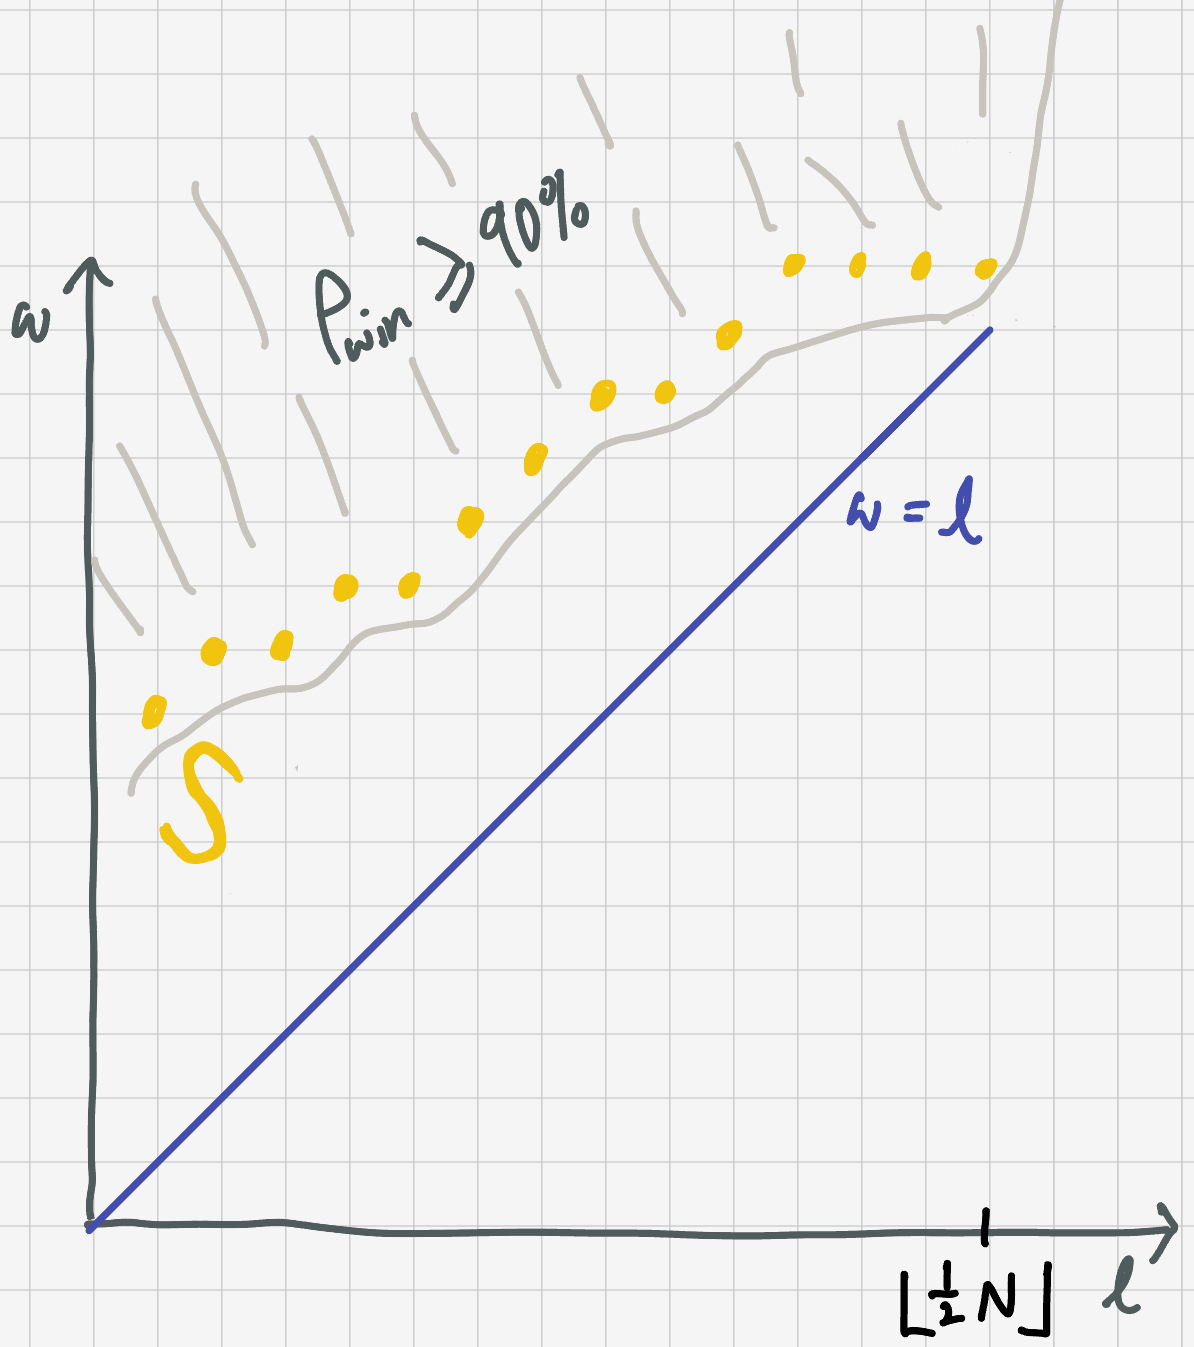 P_win ⩾ 90%
w
w = l
S
⌊½ N⌋
l